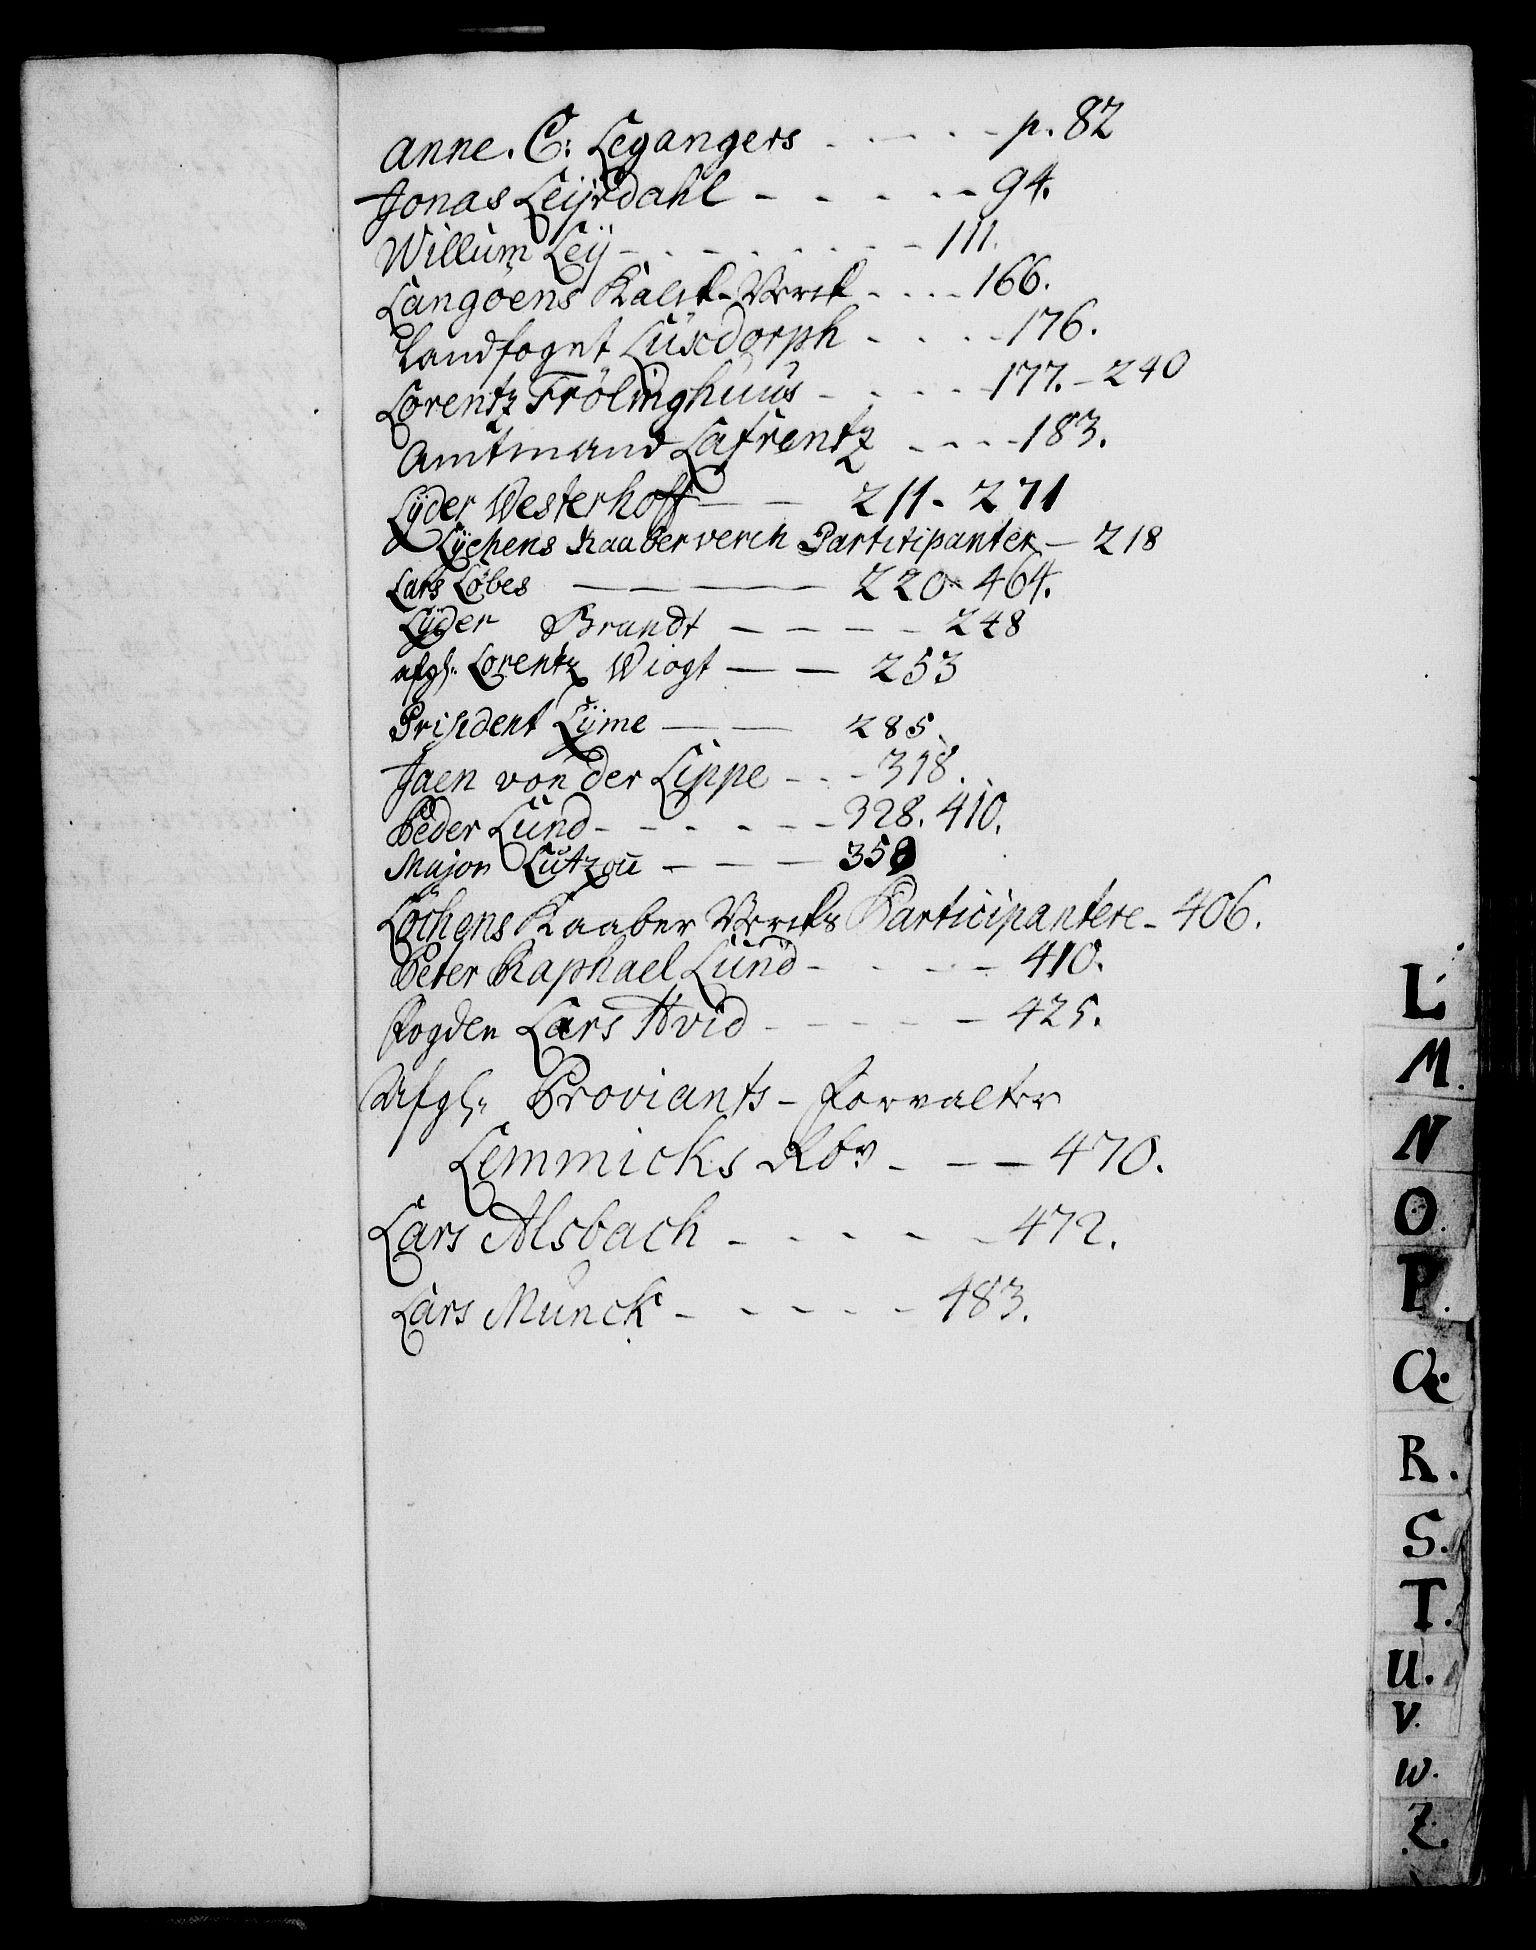 Anne. C: Legangers - - - - p. 82
Jonas Leijrdahl - - - - - 94.
Willum Leÿ - - - - - - - 111.
Langøens Kalck-Verck - - - - 166.
Landfoget Luxdorph - - - - 176.
Lorentz Frølinghuus - - - - 177. - 240
Amtmand Lafrentz - - - - 183.
Lÿder Westerhoff - - 211. 271
Lÿchens Kaaberverch Partitipanter - 218
Lars Løbes - - - - 220. 464.
Lÿder Brandt - - - - 248
afgl. Lorentz Wiogt - - 253
Prisident Lÿme - - 285.
Jaen von der Lippe - - - 318.
Peder Lund - - - - - - 328. 410.
Major Lützou - - - 358
Løchens Kaaber Vercks Participantere - 406.
Peter Raphael Lund - - - - - 410.
Fogden Lars Hvid - - - - - 425.
Afgl. Proviants-Forvalter
Lemmicks - - - 470.
Lars Alsbach - - - - - 472.
Lars Munck - - - - - 483.
L.
M.
N
O.
P.
Q.
R.
S.
T.
U.
V.
W.
Z.